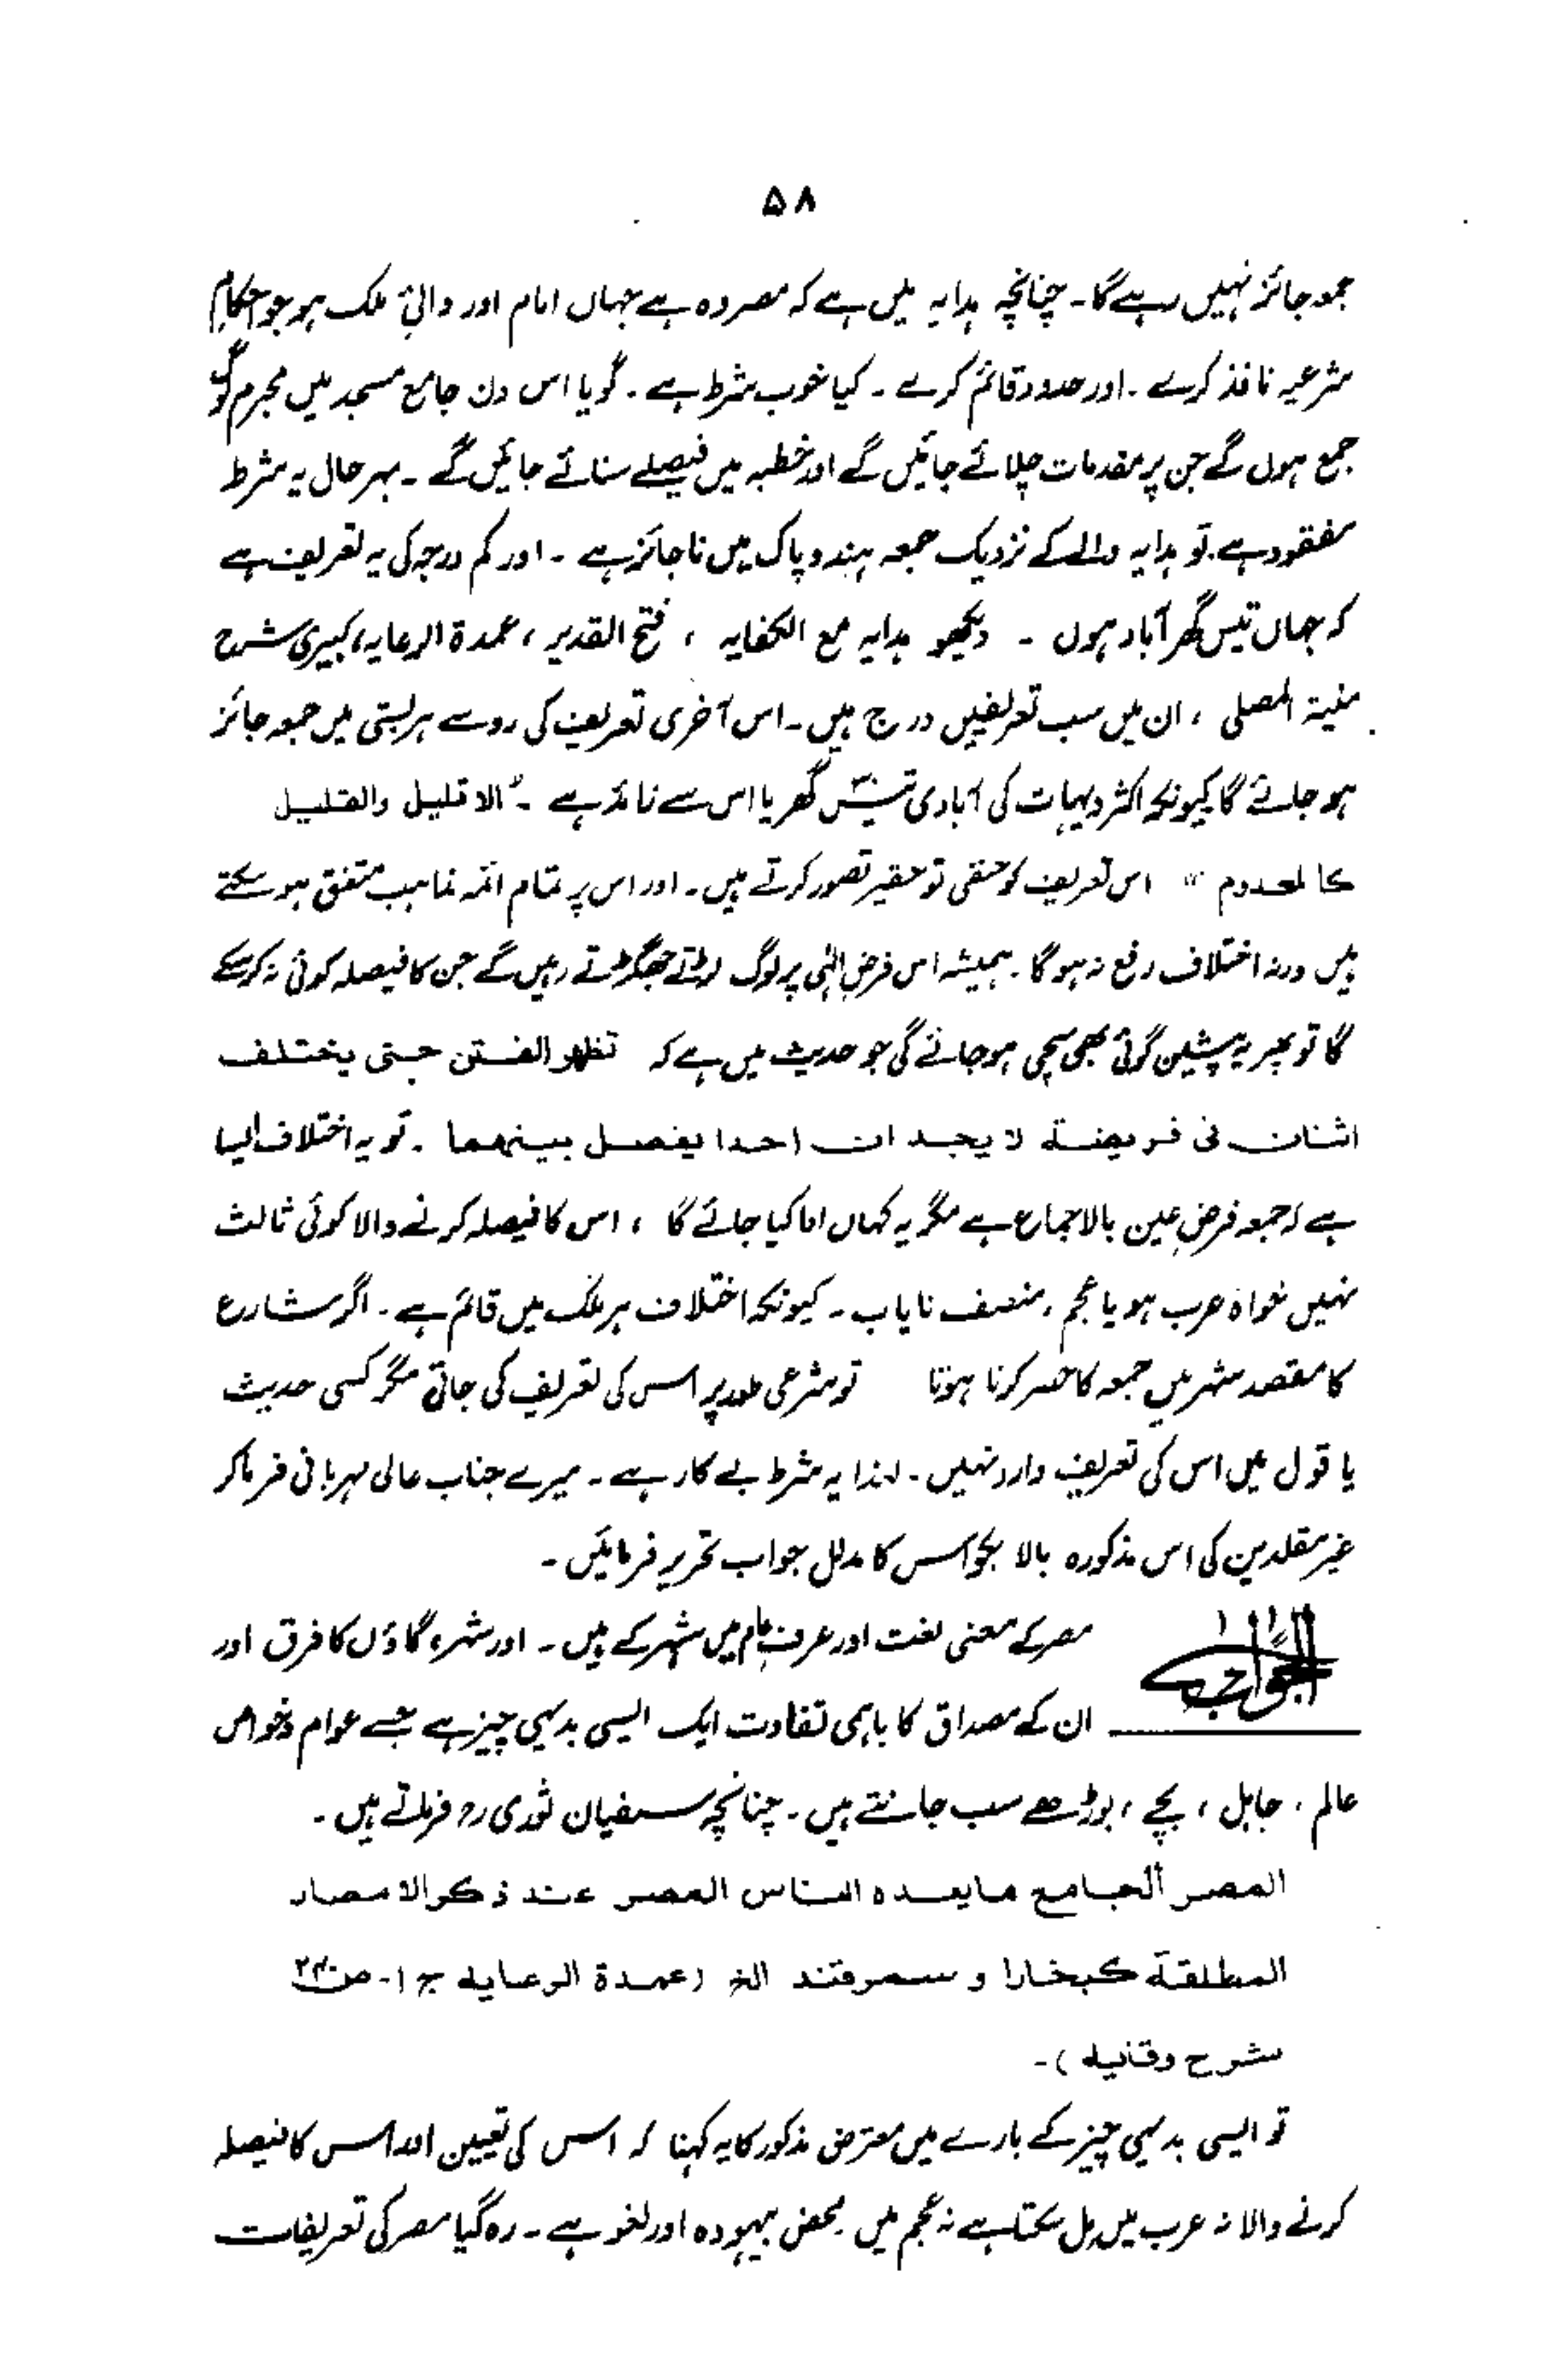 ۵۸
جمعہ جائز نہیں رہے گا۔ چنانچہ ہدایہ میں ہے کہ مصر وہ ہے جہاں امام اور والیٔ ملک ہو جو احکام
شرعیہ نافذ کرے ۔ اور حدود قائم کرے ۔ کیا خوب شرط ہے ۔ گویا اس دن جامع مسجد میں مجرم لوگ
جمع ہوں گے جن پر مقدمات چلائے جائیں گے اور خطبہ میں فیصلے سنائے جائیں گے ۔ بہر حال یہ شرط
مفقود ہے ۔ تو ہدایہ والے کے نزدیک جمعہ ہند و پاک میں ناجائز ہے ۔ اور کم درجہ کی یہ تعریف ہے
کہ جہاں تیس گھر آباد ہوں ۔ دیکھو ہدایہ مع الکفایہ ، فتح القدیر ، عمدۃ الرعایہ، کبیری شرح
منیۃ المصلی ، ان میں سب تعریفیں درج ہیں ۔ اس آخری تعریف کی رو سے ہر بستی میں جمعہ جائز
ہو جائے گا کیونکہ اکثر دیہات کی آبادی تیس گھر یا اس سے زائد ہے ۔ "الا قلیل والقلیل
کالمعدوم" اس تعریف کو حنفی تو حقیر تصور کرتے ہیں ۔ اور اس پر تمام ائمہ مذاہب متفق ہو سکتے
ہیں ورنہ اختلاف رفع نہ ہو گا ۔ ہمیشہ اس فرض الٰہی پر لوگ لڑتے جھگڑتے رہیں گے جن کا فیصلہ کوئی نہ کر سکے
گا تو پھر یہ پیشین گوئی بھی سچی ہو جائے گی جو حدیث میں ہے کہ تظهر الفتن حتی يختلف
اثنان فی فريضة لا يجدان احدا يفصل بينهما ۔ تو یہ اختلاف ایسا
ہے کہ جمعہ فرض عین بالاجماع ہے مگر یہ کہاں ادا کیا جائے گا ، اس کا فیصلہ کرنے والا کوئی ثالث
نہیں خواہ عرب ہو یا عجم ، منصف نایاب ۔ کیونکہ اختلاف ہر ملک میں قائم ہے ۔ اگر شارع
کا مقصد شہر میں جمعہ کا حصر کرنا ہوتا تو شرعی طور پر اس کی تعریف کی جاتی مگر کسی حدیث
یا قول میں اس کی تعریف وارد نہیں ۔ لہذا یہ شرط بے کار ہے ۔ میرے جناب عالی مہربانی فرما کر
غیر مقلدین کی اس مذکورہ بالا بکواس کا مدلل جواب تحریر فرمائیں ۔
الجواب مصر کے معنی لغت اور عرف عام میں شہر کے ہیں ۔ اور شہر، گاؤں کا فرق اور
ان کے مصداق کا باہمی تفاوت ایک ایسی بدیہی چیز ہے جسے عوام و خواص
عالم ، جاہل ، بچے ، بوڑھے سب جانتے ہیں ۔ چنانچہ سفیان ثوری رح فرماتے ہیں ۔
المصر الجامع ما يعده الناس المصر عند ذكر الامصار
المطلقة كبخارا و سمرقند الخ (عمدة الرعايه ج ۱ - ص ۲۴۰
شرح وقايه ) ۔
تو ایسی بدیہی چیز کے بارے میں معترض مذکور کا یہ کہنا کہ اس کی تعیین اور اس کا فیصلہ
کرنے والا نہ عرب میں مل سکتا ہے نہ عجم میں محض بیہودہ اور لغو ہے ۔ رہ گیا مصر کی تعریفات